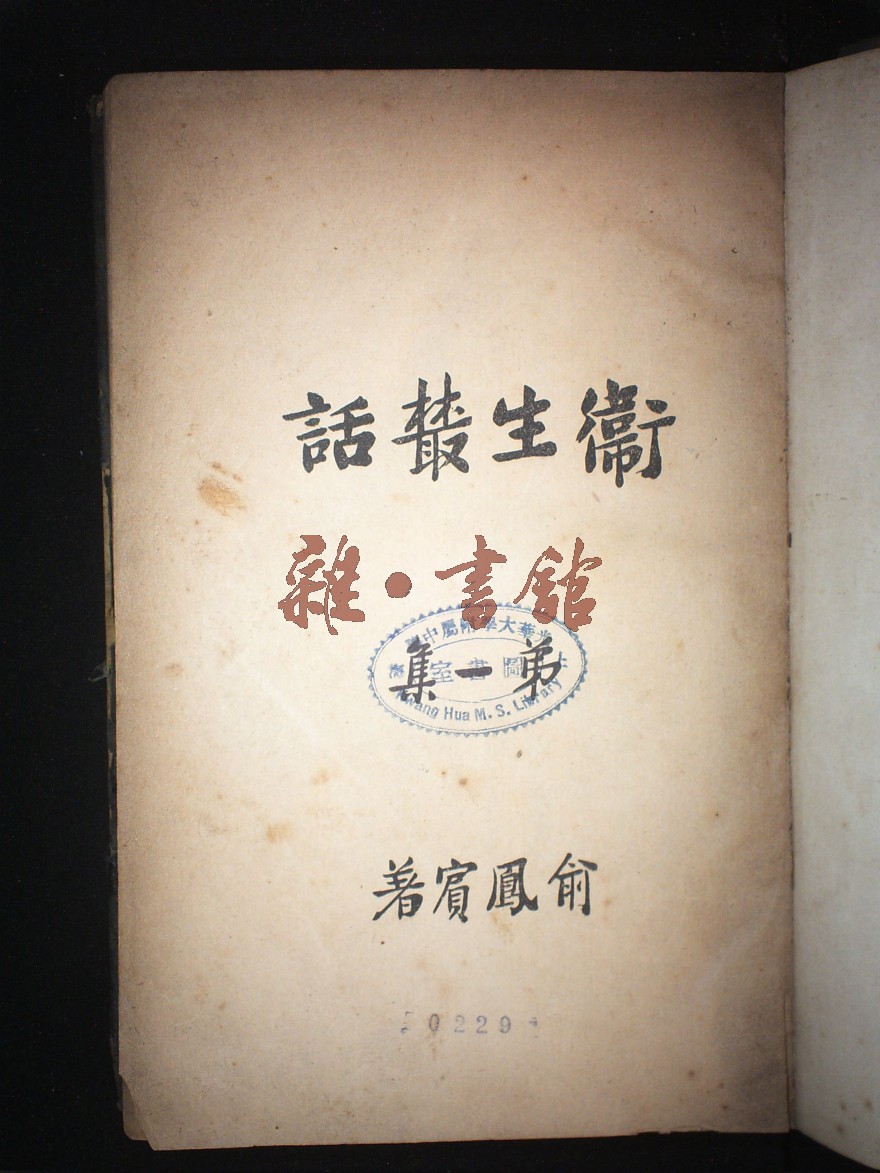 衞生叢話
雜·書館
光華大學附屬中學
上 圖書室 海
Kwang Hua M. S. Library
弟一集
俞鳳賔著
0229